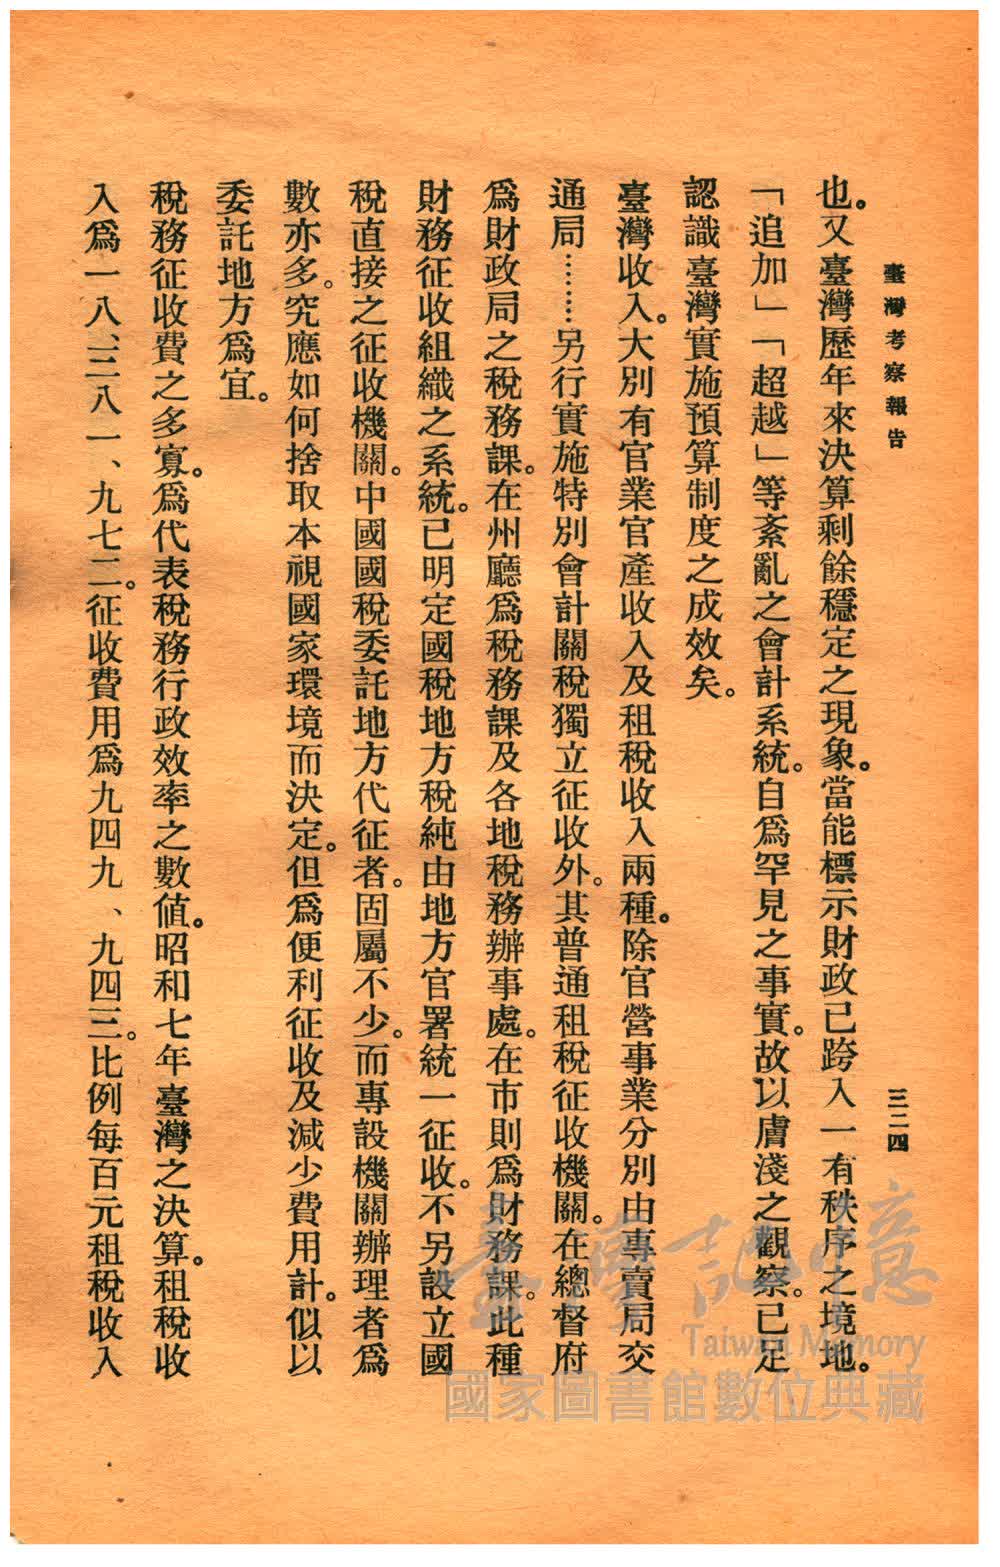 臺灣考察報告
三二四
也。又臺灣歷年來決算剩餘穩定之現象。當能標示財政已跨入一有秩序之境地。
「追加」「超越」等紊亂之會計系統。自爲罕見之事實。故以膚淺之觀察。已足
認識臺灣實施預算制度之成效矣。
臺灣收入。大別有官業官產收入及租稅收入兩種。除官營事業分別由專賣局交
通局………另行實施特別會計關稅獨立征收外。其普通租稅征收機關。在總督府
爲財政局之稅務課。在州廳爲稅務課及各地稅務辦事處。在市則爲財務課。此種
財務征收組織之系統。已明定國稅地方稅純由地方官署統一征收。不另設立國
稅直接之征收機關。中國國稅委託地方代征者。固屬不少。而專設機關辦理者爲
數亦多。究應如何捨取本視國家環境而決定。但爲便利征收及減少費用計。似以
委託地方爲宜。
稅務征收費之多寡。爲代表稅務行政效率之數值。昭和七年臺灣之決算。租稅收
入爲一八、三八一、九七二。征收費用爲九四九、九四三。比例每百元租稅收入
臺灣記憶
Taiwan Memory
國家圖書館數位典藏